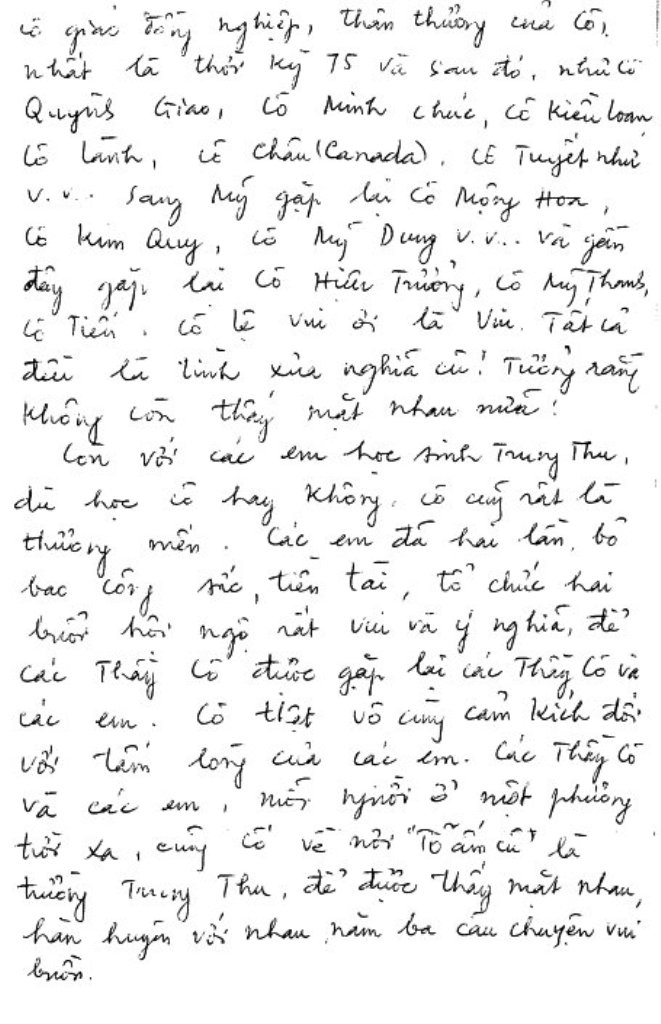 cô giáo đồng nghiệp, thân thương của Cô,
nhất là thời kỳ 75 và sau đó, như Cô
Quỳnh Giao, Cô Minh Chúc, Cô Kiều Loan
Cô Lành, Cô Châu (Canada), Cô Tuyết như
v.v... sang Mỹ gặp lại Cô Mộng Hoa,
Cô Kim Quy, Cô Mỹ Dung v.v... và gần
đây gặp lại Cô Hiệu Trưởng, Cô Mỹ Thanh,
Cô Tiến. Cô Lệ vui ơi là vui. Tất cả
đều là tình xưa nghĩa cũ! Tưởng rằng
không còn thấy mặt nhau nữa!
Còn với các em học sinh Trưng Thu,
dù học cô hay không, cô cũng rất là
thương mến. Các em đã hai lần, bỏ
bạc công sức, tiền tài, tổ chức hai
buổi hội ngộ rất vui và ý nghĩa, để
các Thầy Cô được gặp lại các Thầy Cô và
các em. Cô thật vô cùng cảm kích đối
với tấm lòng của các em. Các Thầy Cô
và các em, mỗi người ở một phương
trời xa, cũng cố về nơi "Tổ ấm cũ" là
trường Trưng Thu, để được thấy mặt nhau,
hàn huyên với nhau năm ba câu chuyện vui
buồn.